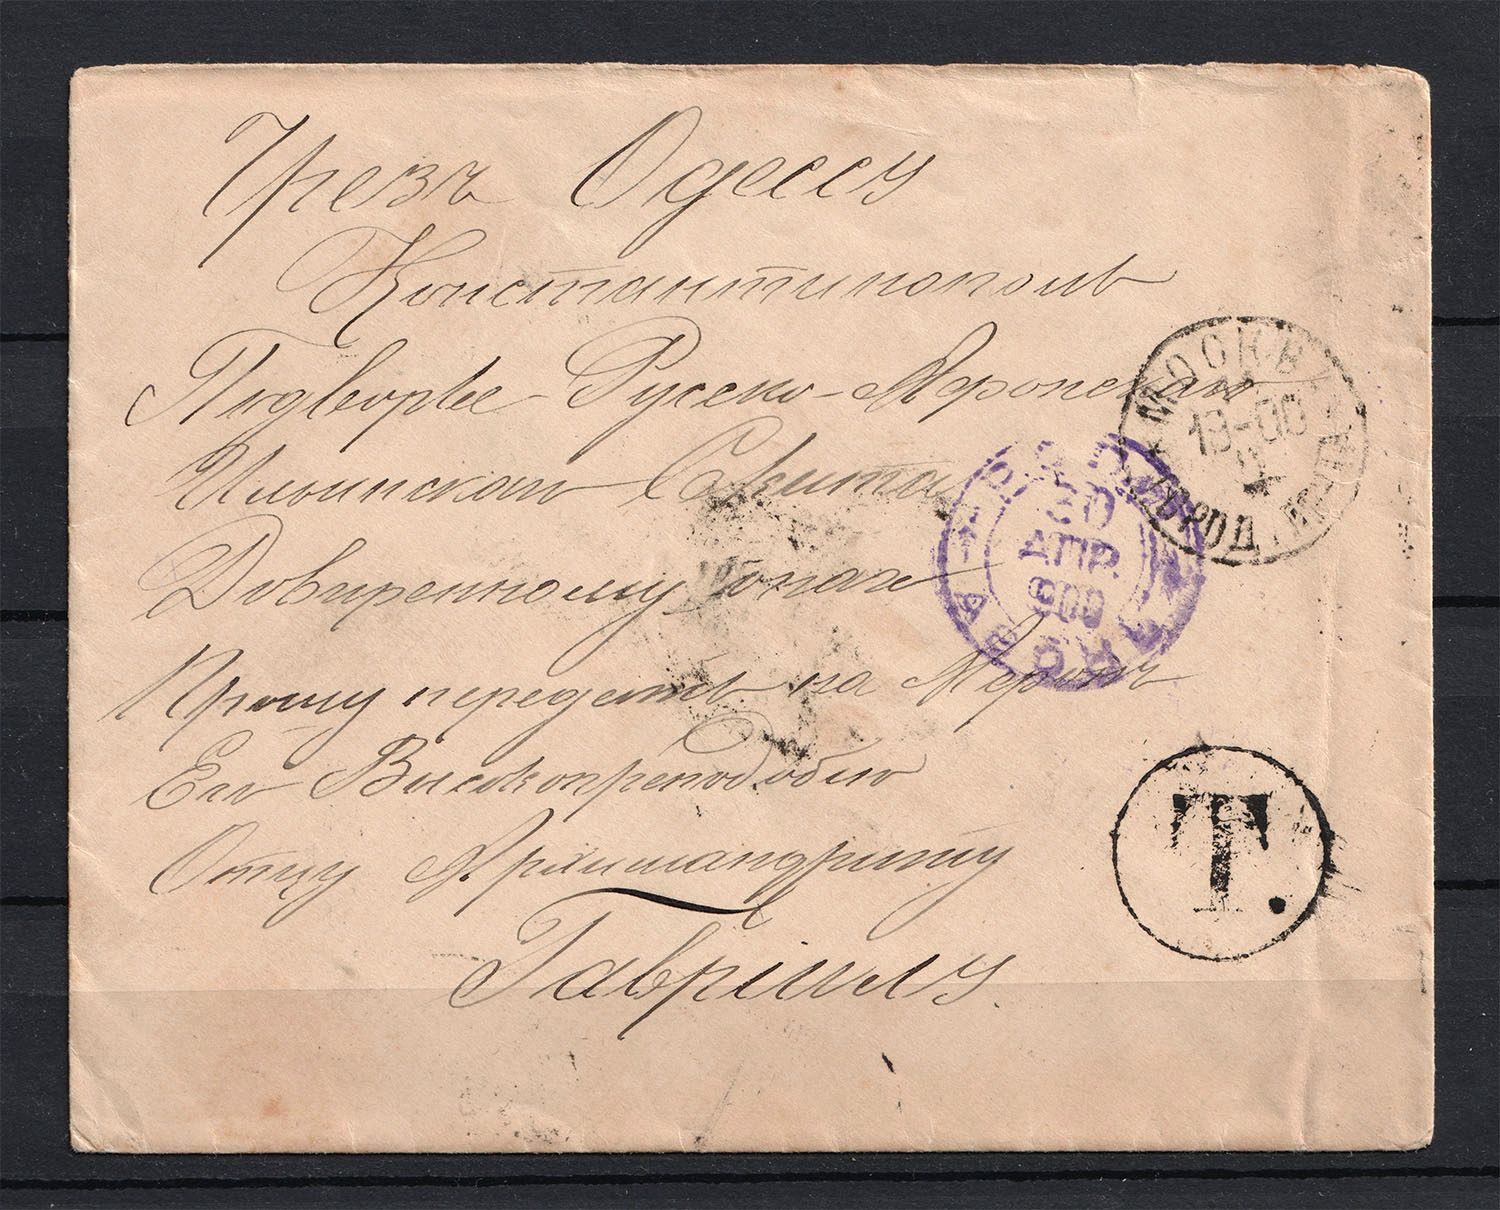 Чрезъ Одессу
Константинополь
Подворье Русско-Афонскаго
Ильинскаго Скита
Довѣренному Монаху
Прошу передать на Афонъ
Его Высокопреподобію
Отцу Архимандриту
Гавріилу.
МОСКВА
19-00
ГОРОД.
30
АПР.
900
T.